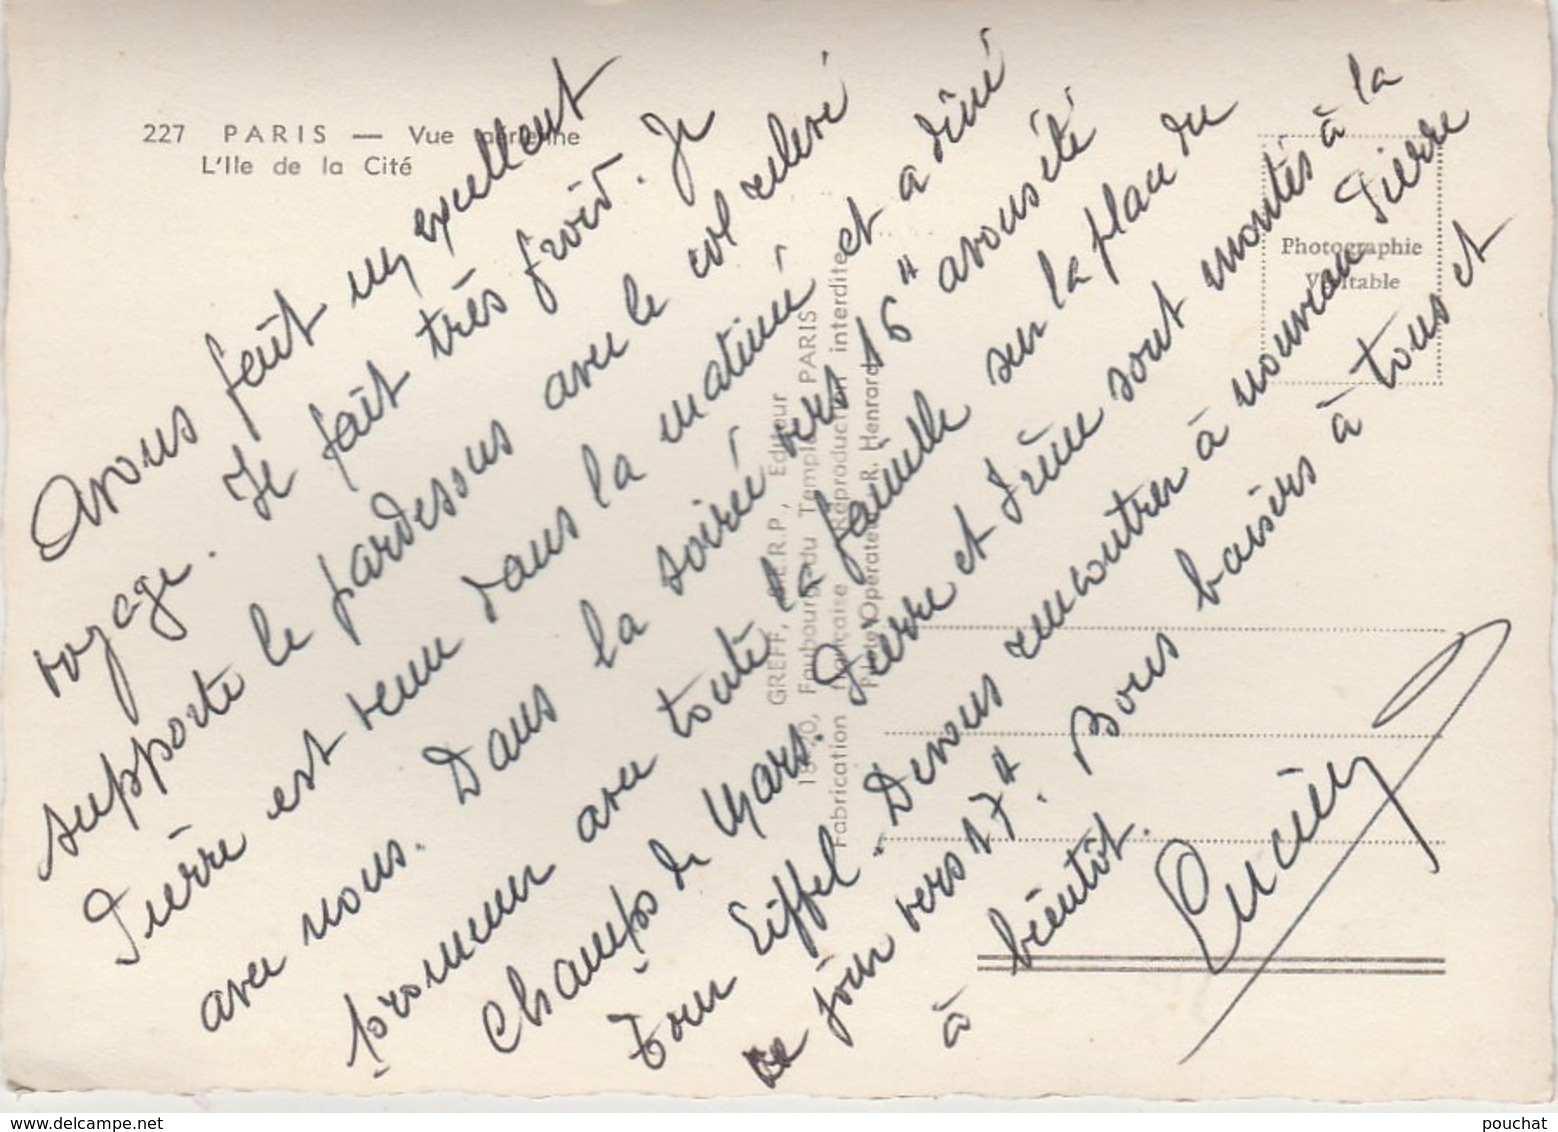 227 PARIS — Vue aérienne
L'Ile de la Cité
Avons fait un excellent
voyage. Il fait très froid. Je
supporte le pardessus avec le col relevé
Pierre est venu dans la matinée et a dîné
avec nous. Dans la soirée vers 16 H avons été
promener avec toute la famille sur la place du
Champs de Mars. Pierre et Irène sont montés à la
Tour Eiffel. Devons rencontrer à nouveau Pierre
ce jour vers 17 H. Bons baisers à tous et
à bientôt.
Lucien
GREFF, S.E.R.P., Editeur
Faubourg du Temple PARIS
Fabrication française Reproduction interdite
Pilote Opérateur R. Henrard
Photographie
Véritable
www.delcampe.net
pouchat